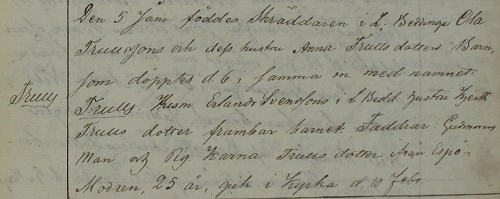 Den 5 Jan föddes Skräddaren i L. Beddinge Ola
Trulssons och dess hustru Anna Trulls dotters Barn,
som döptes d. 6 i samma m med namnet
Trulls
Trulls. Husm Erlandr Svenssons i L Bedd. hustru Kjersti
Truls dotter frambar barnet. Faddrar:
man och Pig. Karna Truls dotter från Espö.
Modren, 25 år, gick i Kyrka d. 10 Febr.